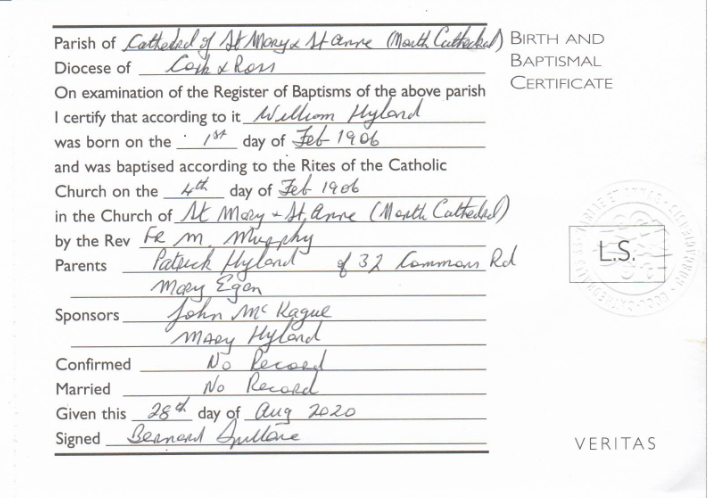 Parish of Cathedral of St Mary & St Anne (North Cathedral)
Diocese of Cork & Ross
On examination of the Register of Baptisms of the above parish
I certify that according to it William Hyland
was born on the 1st day of Feb 1906
and was baptised according to the Rites of the Catholic
Church on the 4th day of Feb 1906
in the Church of St Mary + St. Anne (North Cathedral)
by the Rev Fr M. Murphy
Parents Patrick Hyland of 32 Commons Rd
Mary Egan
Sponsors John Mc Kague
Mary Hyland
Confirmed No Record
Married No Record
Given this 28th day of Aug 2020
Signed Bernard
BIRTH AND
BAPTISMAL
CERTIFICATE
L.S.
VERITAS